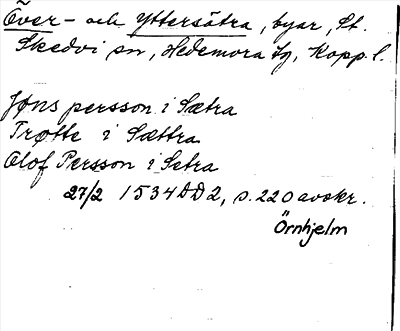 Över- och Yttersätra, byar, St.
Skedvi sn, Hedemora tg, Kopp. l.
Jøns persson i Sætra
Trøtte i Sættra
Olof Persson i Setra
27/2 1534 DD2, s. 220 avskr.
Örnhjelm